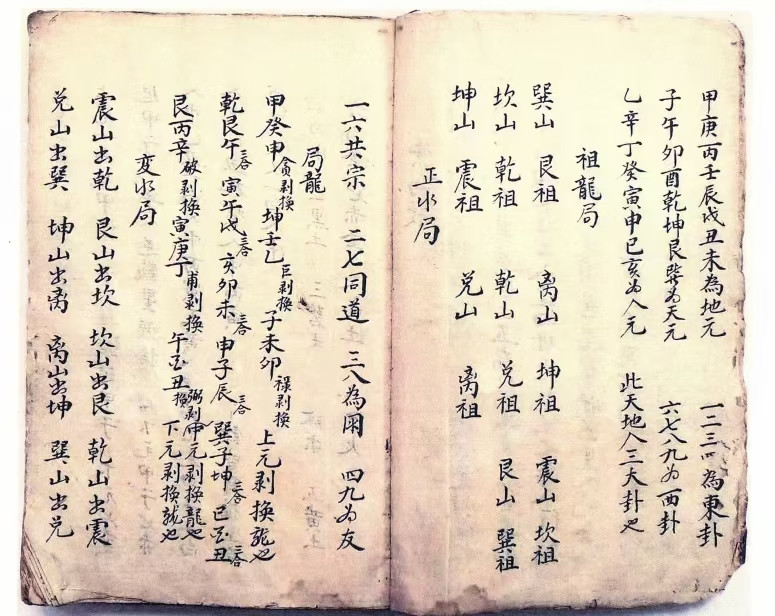 甲庚丙壬辰戌丑未為地元 一二三四為東卦
子午卯酉乾坤艮巽為天元 六七八九為西卦
乙辛丁癸寅申巳亥為人元 此天地人三大卦也
祖龍局
巽山 艮祖 离山 坤祖 震山 坎祖
坎山 乾祖 乾山 兑祖 艮山 巽祖
坤山 震祖 兑山 离祖
正水局
一六共宗 二七同道 三八為朋 四九為友
局龍
甲癸申貪剥換 坤壬乙巨剥換 子未卯禄剥換 上元剥換龍也
乾艮午三合 寅午戌三合 亥卯未三合 申子辰三合 巽子坤三合 巳酉丑三合
艮丙辛破剥換 寅庚丁甫剥換 午酉丑弼剥換 中元剥換龍也 下元剥換龍也
变水局
震山出乾 艮山出坎 坎山出艮 乾山出震
兑山出巽 坤山出离 离山出坤 巽山出兑